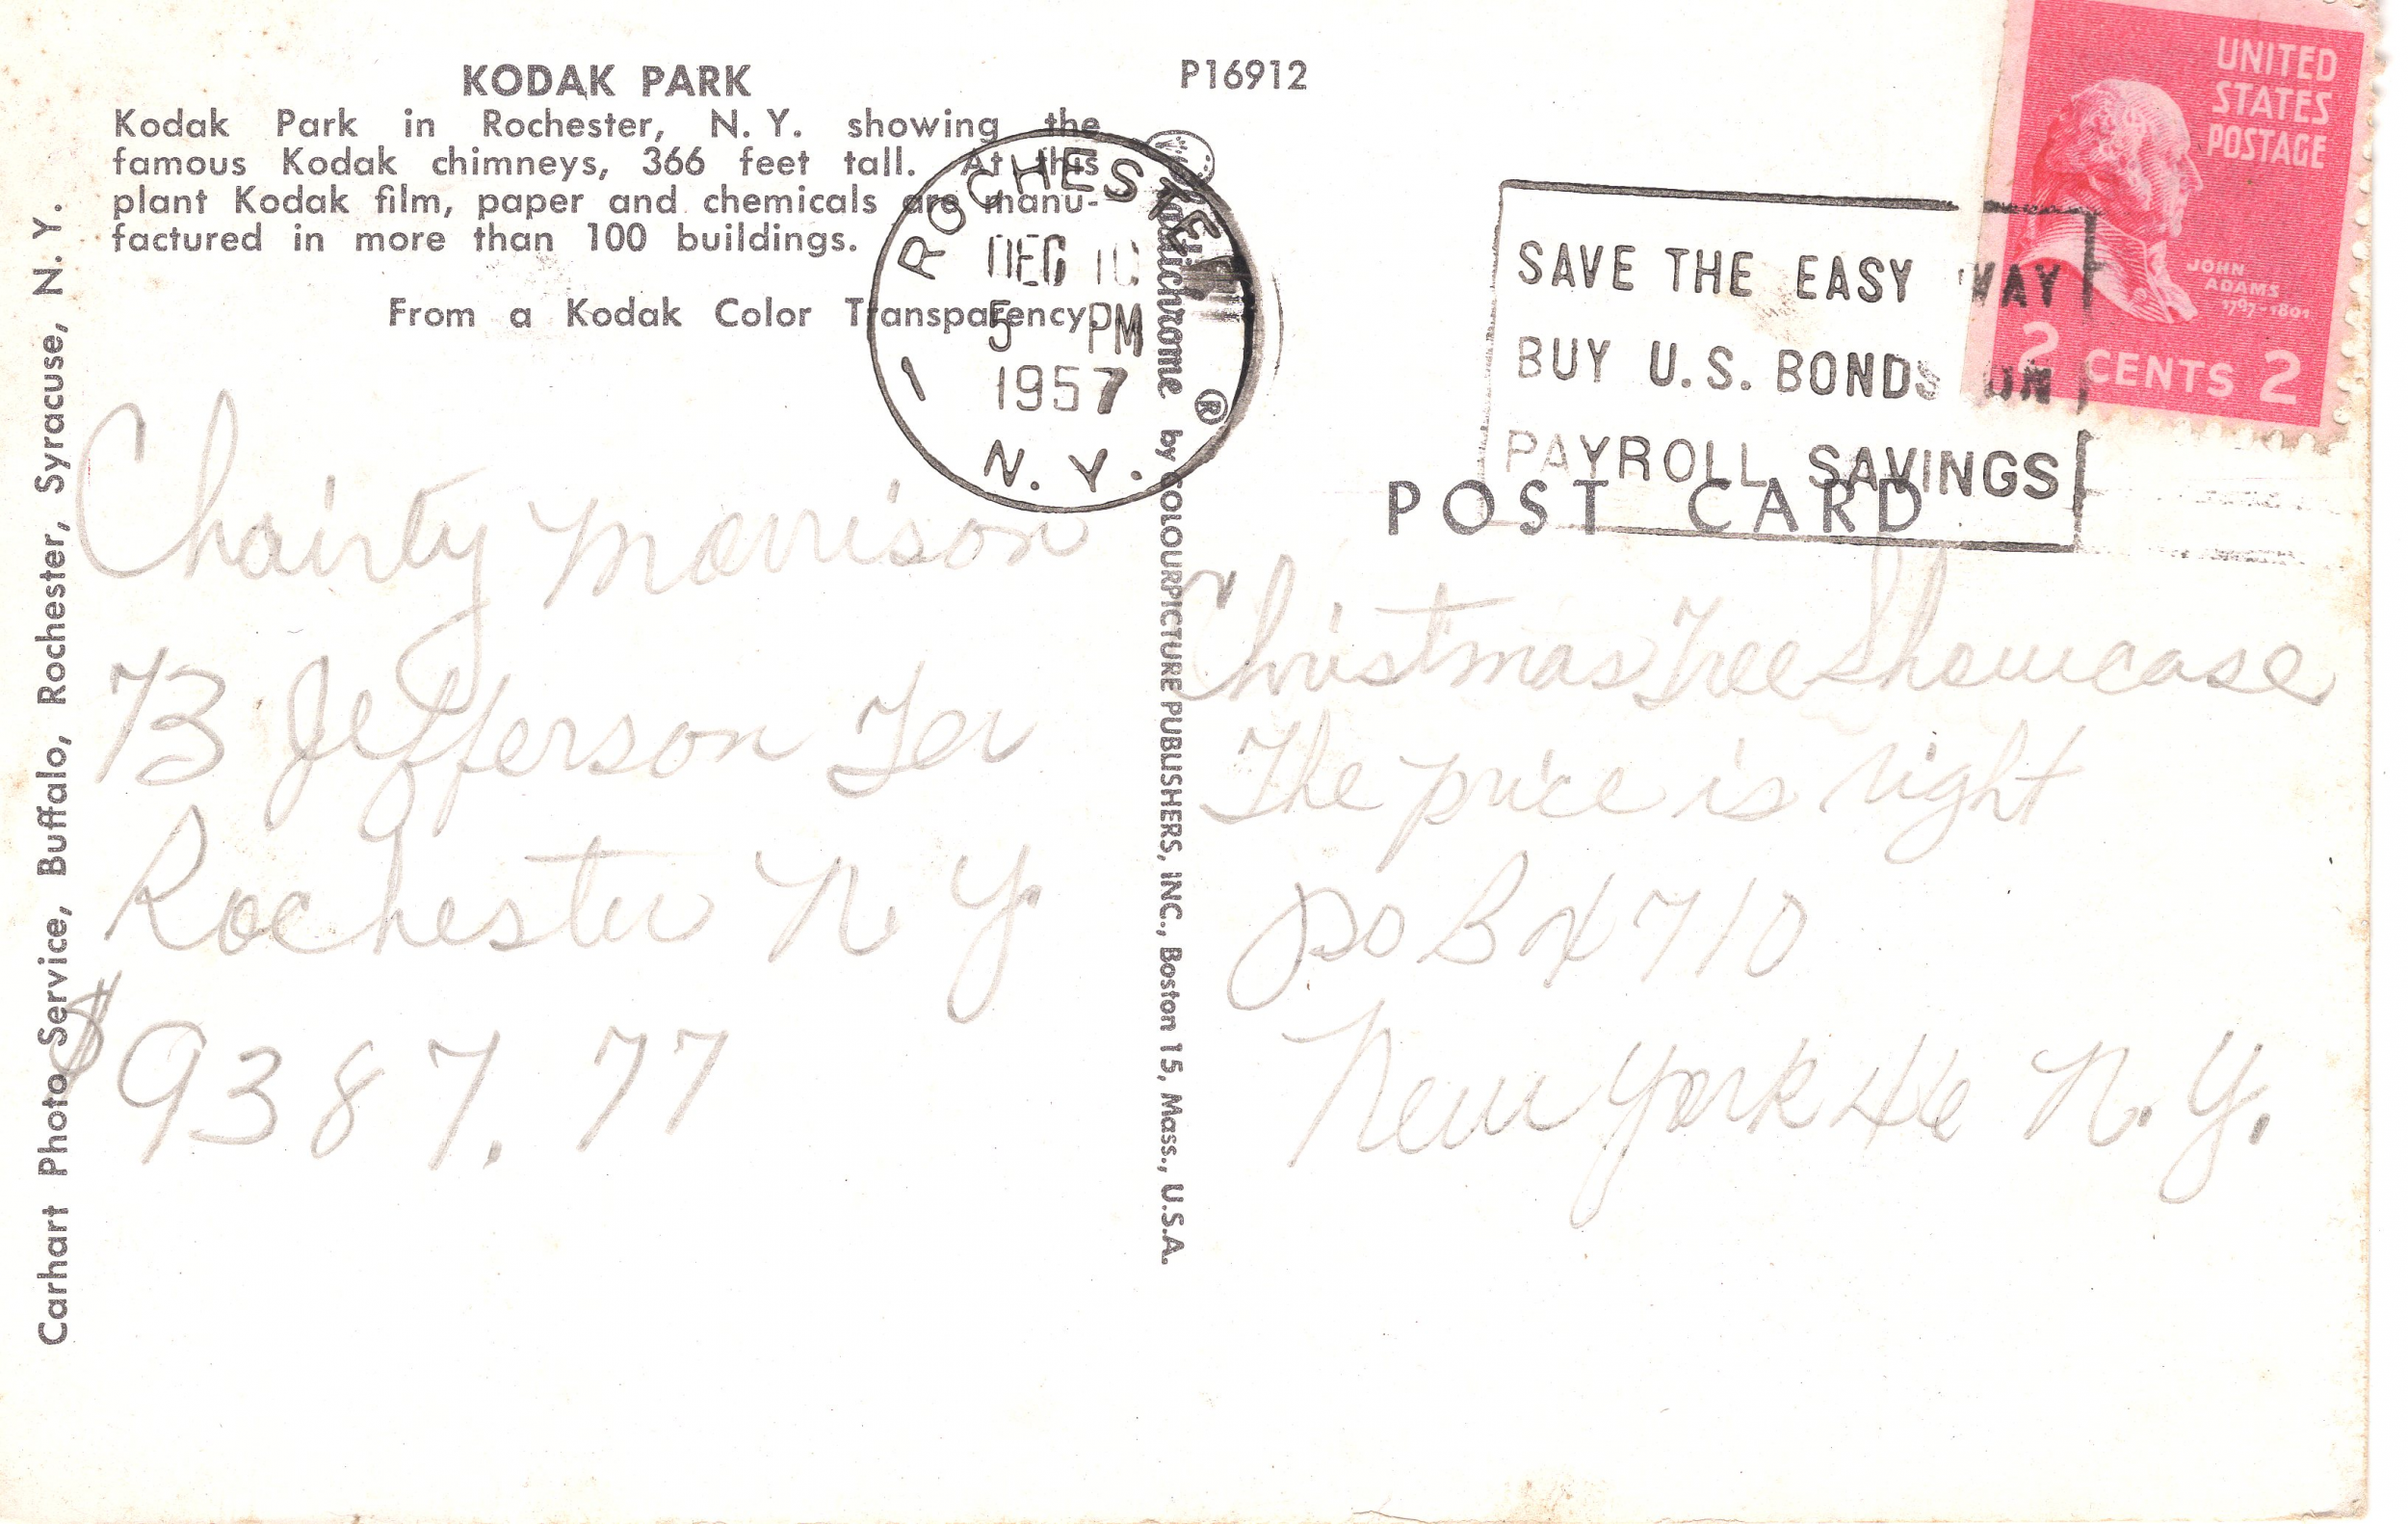 KODAK PARK
Kodak Park in Rochester, N. Y. showing the
famous Kodak chimneys, 366 feet tall. At this
plant Kodak film, paper and chemicals are manu-
factured in more than 100 buildings.
From a Kodak Color Transparency
P16912
Carhart Photo Service, Buffalo, Rochester, Syracuse, N. Y.
ROCHESTER
DEC 10
5 PM
1957
1
N. Y.
Plastichrome ® by COLOURPICTURE PUBLISHERS, INC., Boston 15, Mass., U.S.A.
SAVE THE EASY WAY
BUY U.S. BONDS ON
PAYROLL SAVINGS
UNITED
STATES
POSTAGE
JOHN
ADAMS
1797-1801
2 CENTS 2
POST CARD
Chairty Morrison
73 Jefferson Ter
Rochester N Y.
$9387.77
Christmas Tree Showcase
The price is right
po Bx 710
New York 46 N.Y.